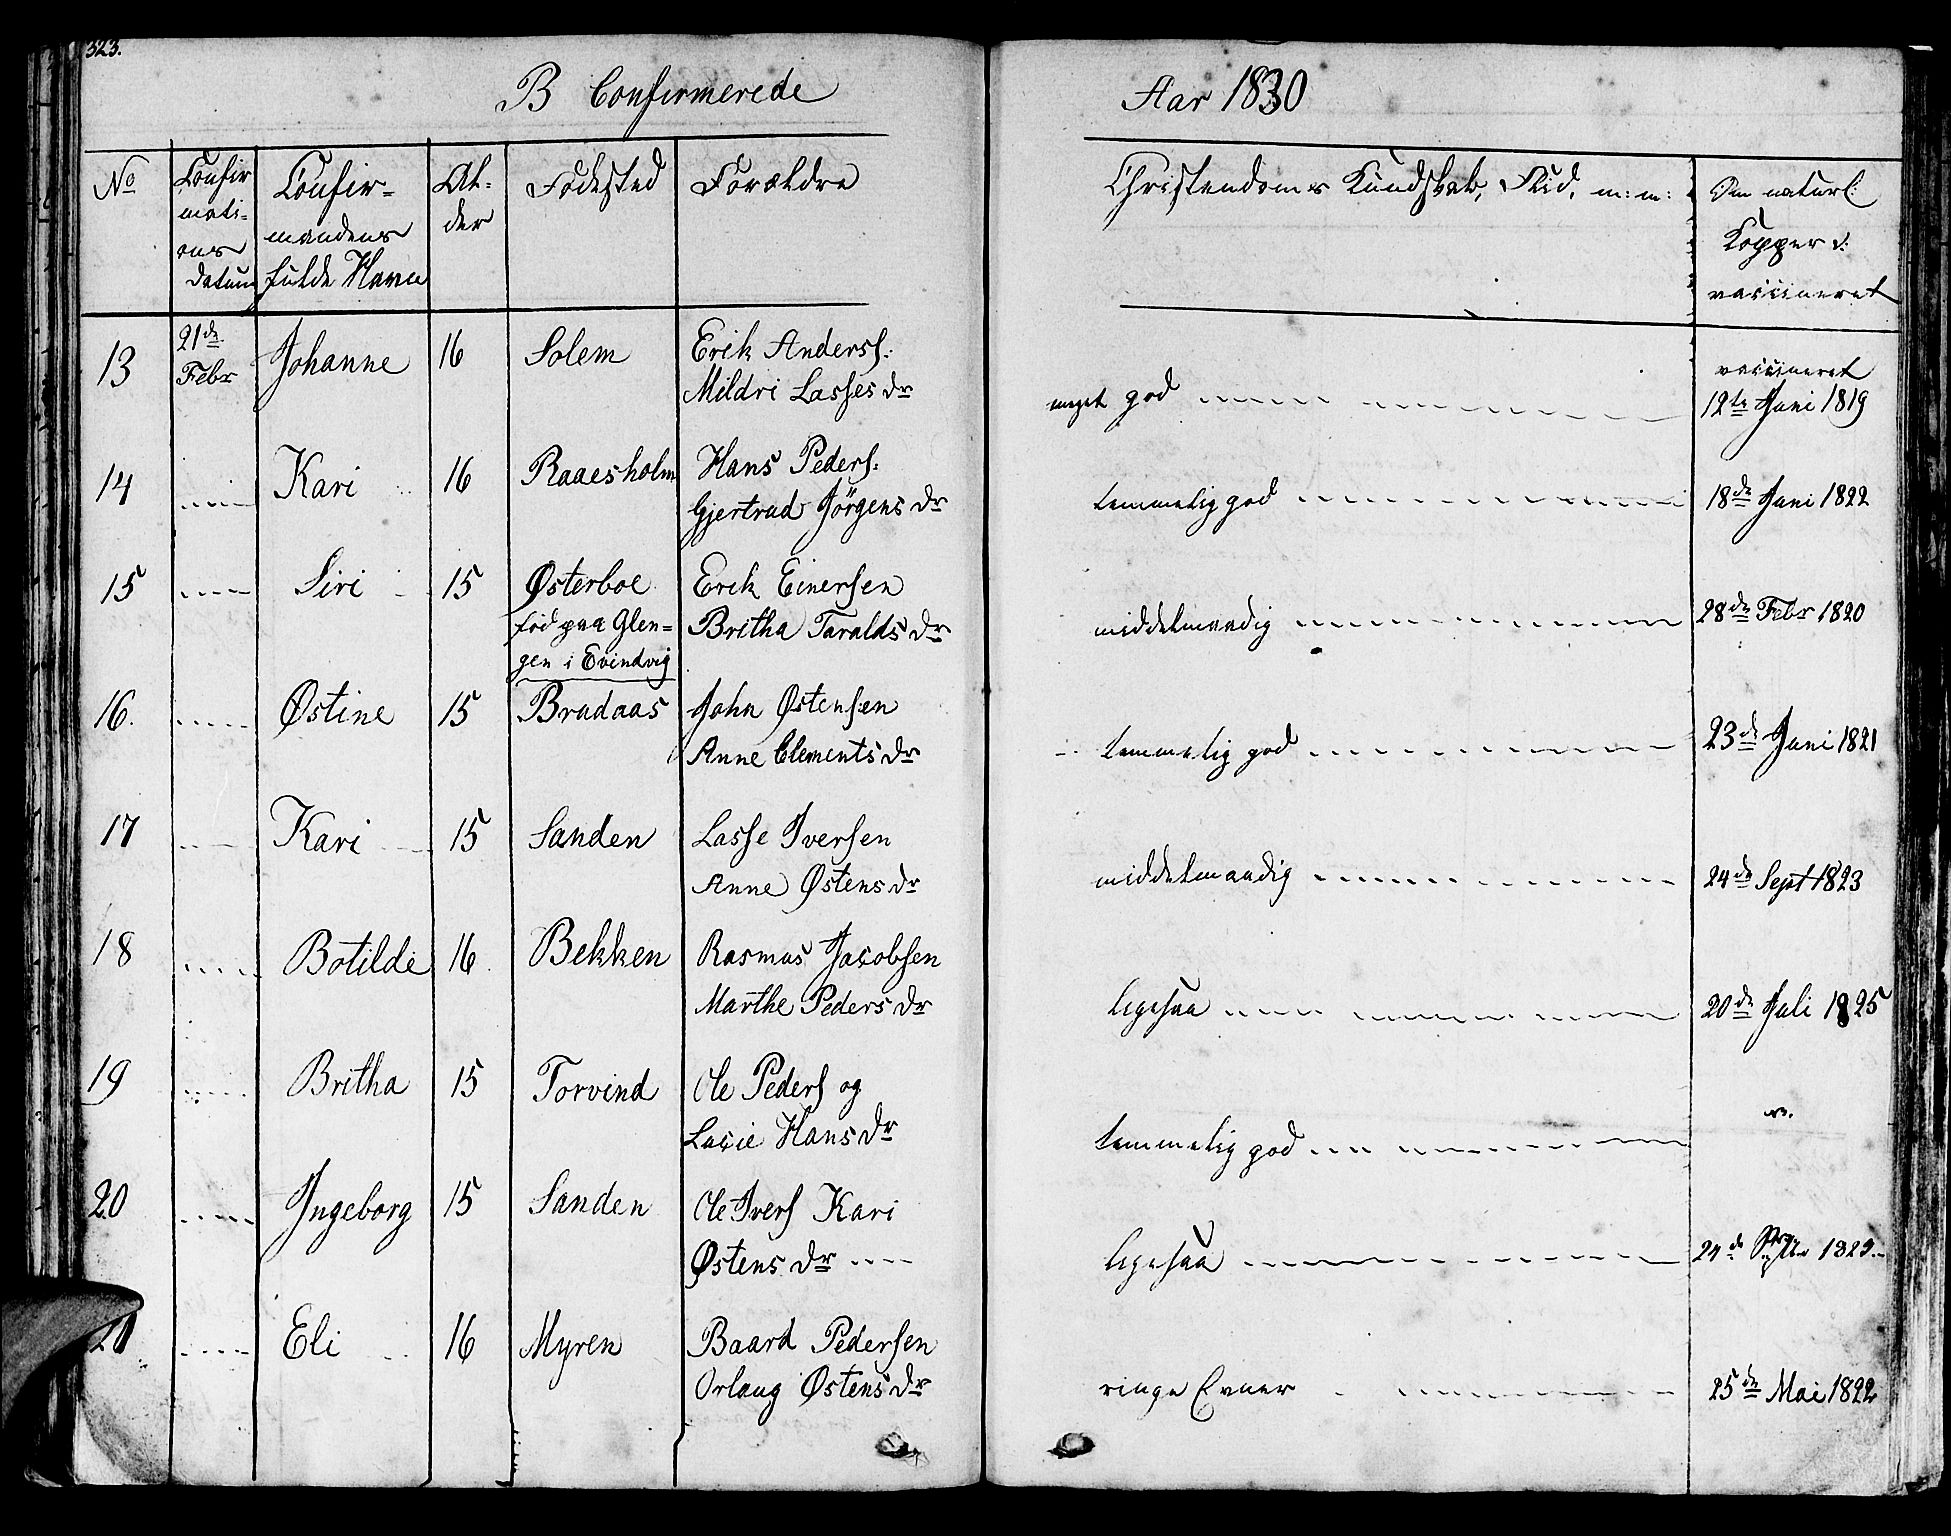 323.
B Confirmerede
Aar 1830
No
Confir
mati-
ons
Datum
Confir-
mandens
fulde Navn
Al-
der
Födested
Forældre
Christendoms Kundskab, Flid, m: m:
Om naturl:
Kopper e:
vaccineret
13 21de Febr Johanne 16 Solem Erik Anderss:
Mildri Lasses Dr
meget god
vaccineret
12te Juni 1819
14 Kari 16 Raaesholm Hans Peders:
Gjertrud Jörgens Dr
temmelig god 18de Juni 1822
15 Siri 15 Østerboe Erik Einersen
föd paa Glen= Britha Taralds Dr
gen i Evindvig
middelmaadig 28de Febr 1820
16. Østine 15 Bradaas John Østensen
Anne Clements Dr
temmelig god 23de Juni 1821
17 Kari 15 Sanden Lasse Iversen
Anne Østens Dr
middelmaadig 24de Sept 1823
18 Botilde 16 Bekken Rasmus Jacobsen
Marthe Peders Dr
ligesaa 20de Juli 1825
19 Britha 15 Torvind Ole Peders og
Lucie Hans Dr
temmelig god v.
20 Ingeborg 15 Sanden Ole Ivers Kari
Østens Dr
ligesaa 24de 1823
21 Eli 16 Myren Baard Pedersen
Orlaug Østens Dr
ringe Evner 25de Mai 1822